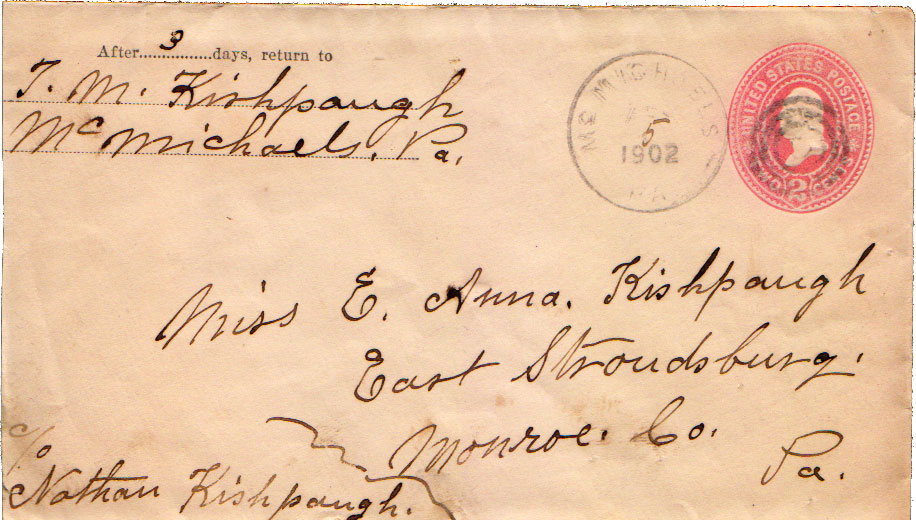 After 3 days, return to
T. M. Kishpaugh
Mc Michaels, Pa.
MC MICHAELS
5
1902
PA
UNITED STATES POSTAGE
TWO 2 CENTS
Miss E. Anna. Kishpaugh
East Stroudsburg.
Monroe. Co.
Pa.
c/o
Nathan Kishpaugh.